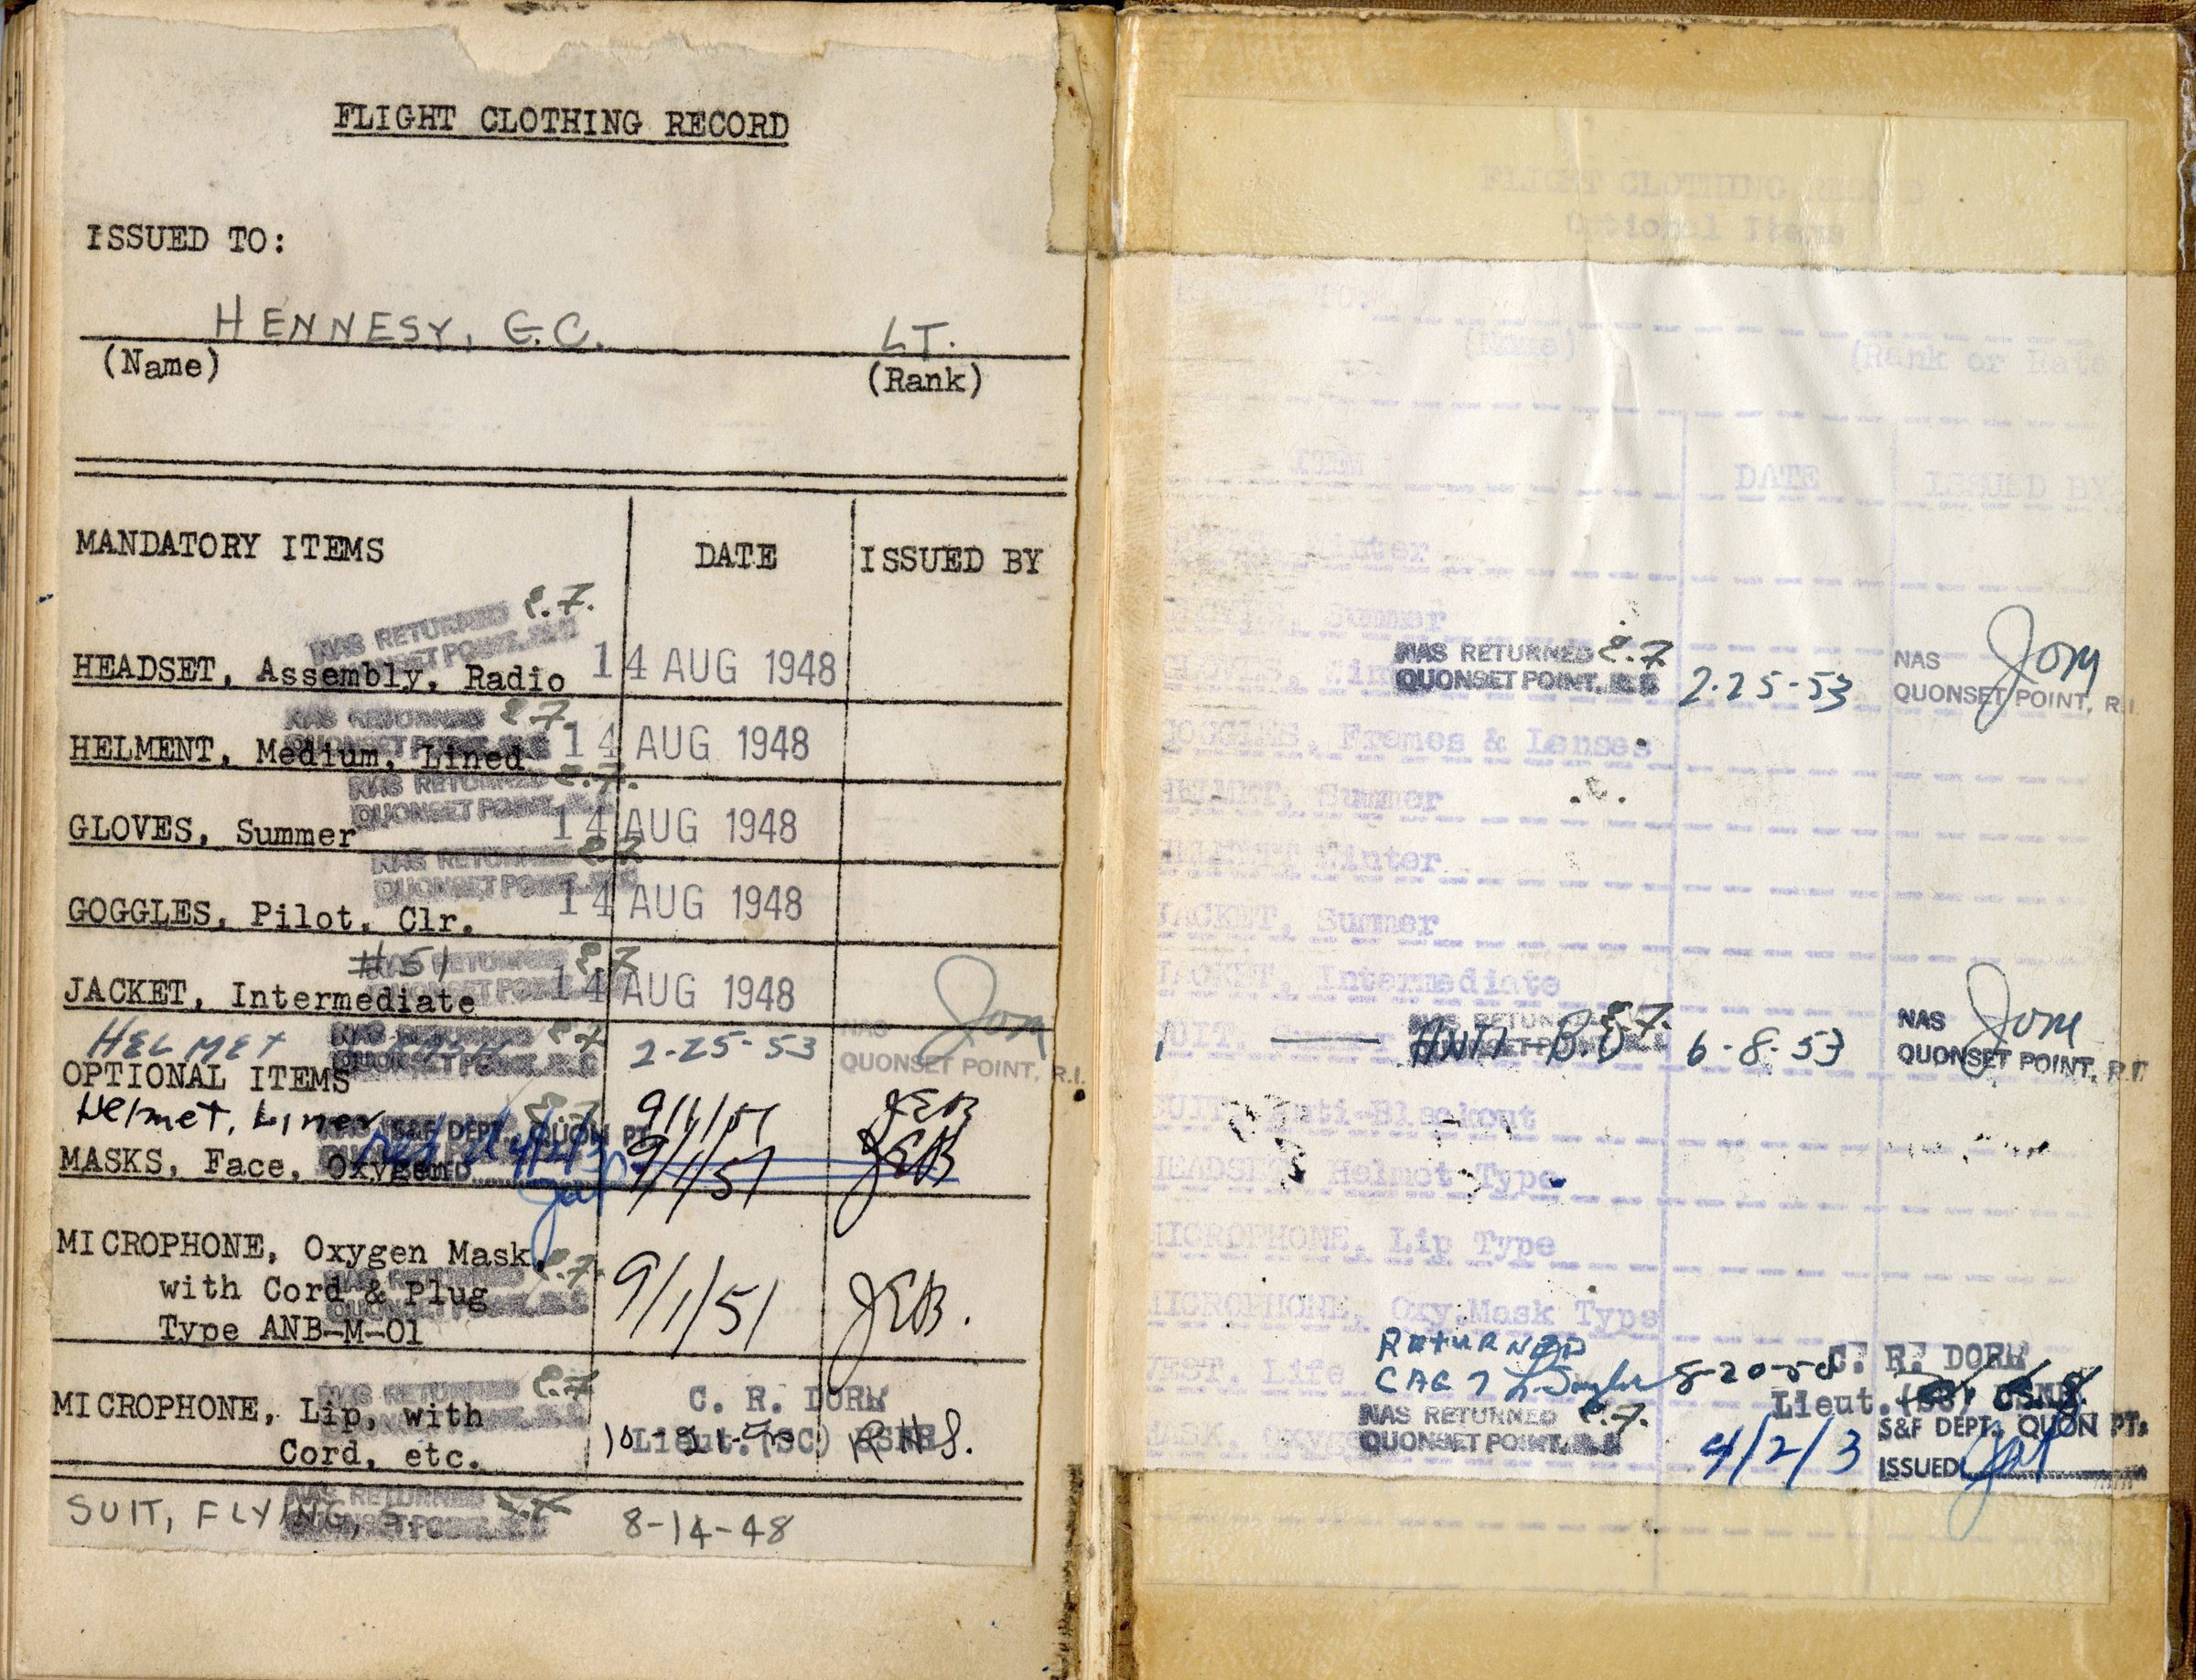 FLIGHT CLOTHING RECORD
ISSUED TO:
HENNESY, G.C. LT.
(Name) (Rank)
MANDATORY ITEMS DATE ISSUED BY
NAS RETURNED E.7.
QUONSET POINT, R.I.
HEADSET, Assembly, Radio 14 AUG 1948
NAS RETURNED E.7.
QUONSET POINT, R.I.
HELMENT, Medium, Lined 14 AUG 1948
NAS RETURNED E.7.
QUONSET POINT, R.I.
GLOVES, Summer 14 AUG 1948
NAS RETURNED E.7
QUONSET POINT, R.I.
GOGGLES, Pilot, Clr. 14 AUG 1948
#51 NAS RETURNED E.7
QUONSET POINT, R.I.
JACKET, Intermediate 14 AUG 1948
HELMET NAS RETURNED E.7 2-25-53 NAS Jom
QUONSET POINT, R.I. QUONSET POINT, R.I.
OPTIONAL ITEMS
Helmet, Liner 9/1/51 JEB
S&F DEPT., QUON PT.
MASKS, Face, Oxygen 9/1/51 JEB
MICROPHONE, Oxygen Mask,
with Cord & Plug 9/1/51 JEB.
Type ANB-M-01
NAS RETURNED E.7.
QUONSET POINT, R.I.
MICROPHONE, Lip, with C. R. DORR
Cord, etc. Lieut. (SC) USNR RHS.
NAS RETURNED
QUONSET POINT, R.I.
SUIT, FLYING, S. 8-14-48
FLIGHT CLOTHING RECORD
Optional Items
ISSUED TO:
(Name) (Rank or Rate
ITEM DATE ISSUED BY
Winter
Summer
NAS RETURNED E.7 2-25-53 NAS Jom
QUONSET POINT, R.I. QUONSET POINT, R.I.
GLOVES, Win
GOGGLES, Frames & Lenses
HELMET, Summer
HELMET Winter
JACKET, Summer
JACKET, Intermediate
NAS RETURNED E.7. NAS Jom
SUIT, Summer ANTI-B.O 6-8-53 QUONSET POINT, R.I.
SUIT, Anti-Blackout
HEADSET, Helmet Type
MICROPHONE, Lip Type
MICROPHONE, Oxy.Mask Type
RETURNED C. R. DORR
VEST, Life CAG 7 8-20-50 Lieut. (SC) USNR
NAS RETURNED E.7. S&F DEPT., QUON PT.
QUONSET POINT, R.I.
MASK, Oxyg 4/2/3 ISSUED